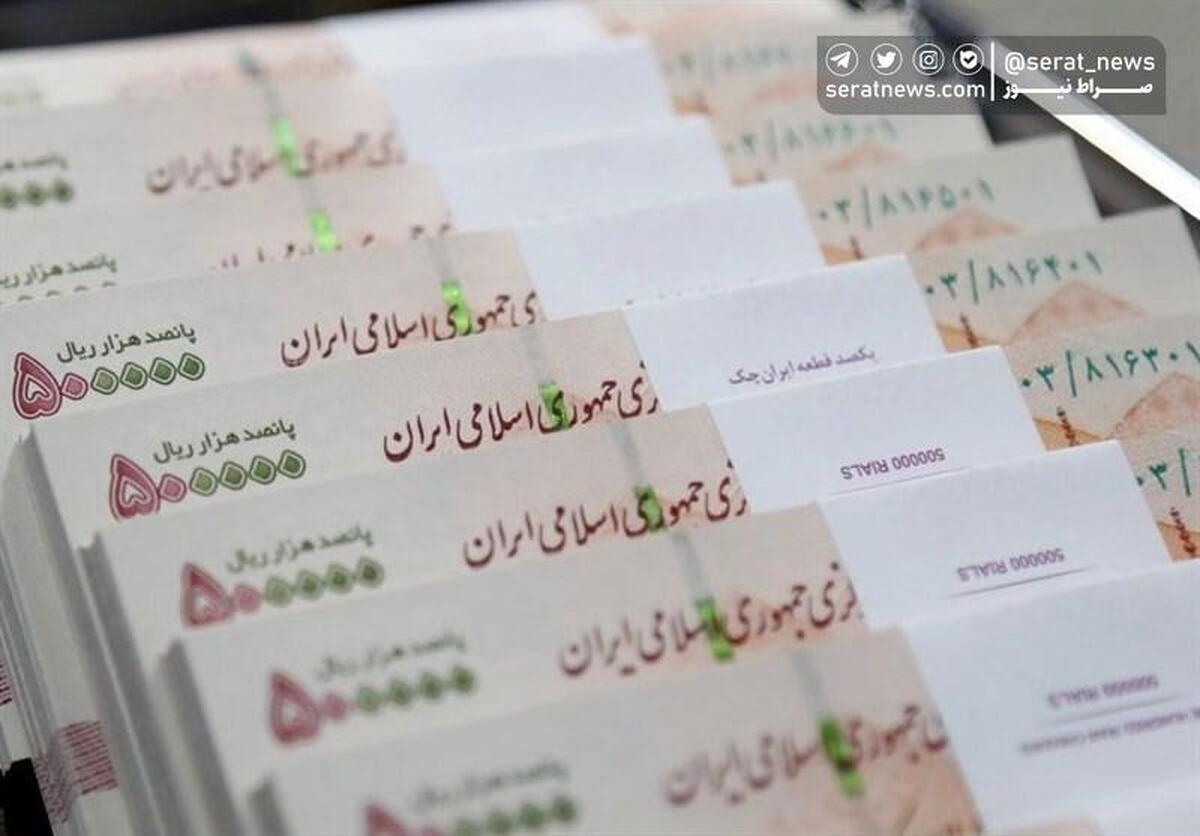 @serat_news
seratnews.com | صراط نیوز
۰۳/۸۱۶۶۰۱
ی جمهوری اسلامی ایران
۰۳/۸۱۶۵۰۱
پانصد هزار ریال
۰۳/۸۱۶۴۰۱
پانصد هزار ریال
۵۰۰۰۰۰
جمهوری اسلامی ایران
یکصد قطعه ایران چک
۰۳/۸۱۶۳۰۱
پانصد هزار ریال
۵۰۰۰۰۰
زی جمهوری اسلامی ایران
500000 RIALS
۰۳/
پانصد هزار ریال
۵۰۰۰۰۰
زی جمهوری اسلامی ایران
500000 RIALS
پانصد هزار ریال
۵۰۰۰۰۰
زی جمهوری اسلامی ایران
500000 RIALS
HUNDRED IRAN CHEQUES
پانصد هزار ریال
جمهوری اسلامی ایران